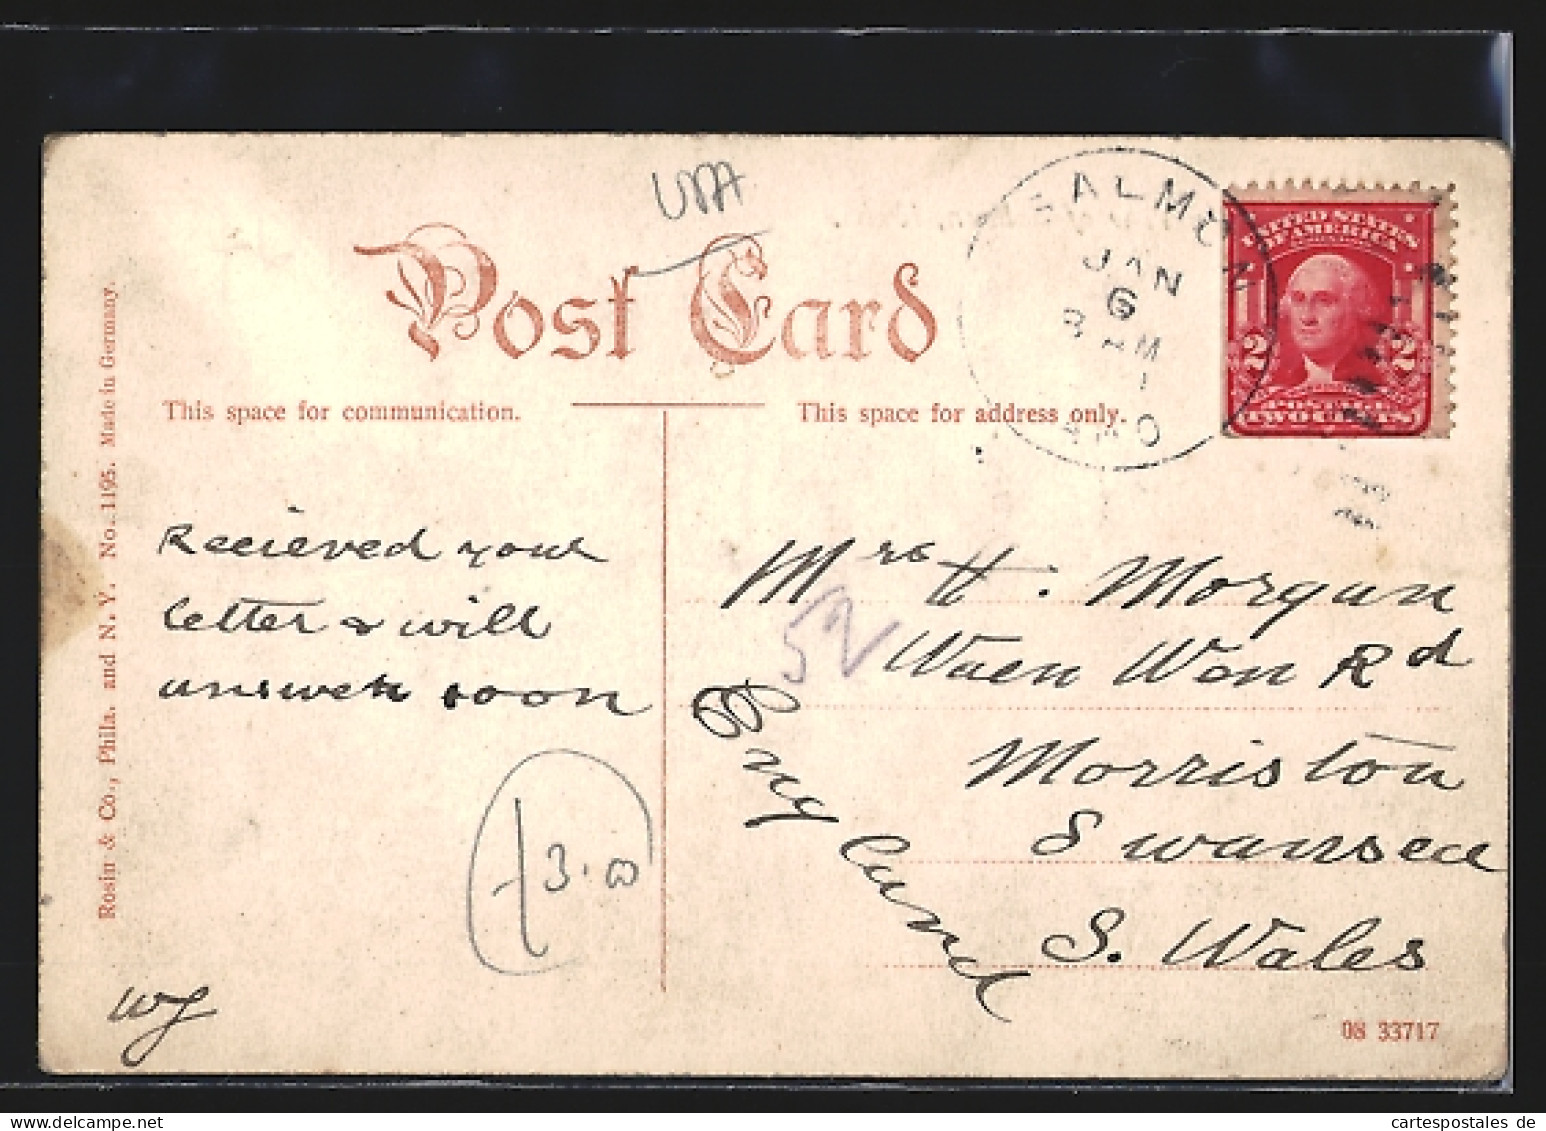 USA
Post Card
This space for communication.
This space for address only.
SALMON
JAN
6
8 AM
UNITED STATES
OF AMERICA
2 2
POSTAGE
TWO CENTS
Recieved your
letter & will
answer soon
WJ
3.00
52
Mrs H. Morgan
Waen Won Rd
Morriston
Swansea
S. Wales
England
Rosin & Co., Phila. and N. Y. No. 1195. Made in Germany.
08 33717
www.cartespostales.de